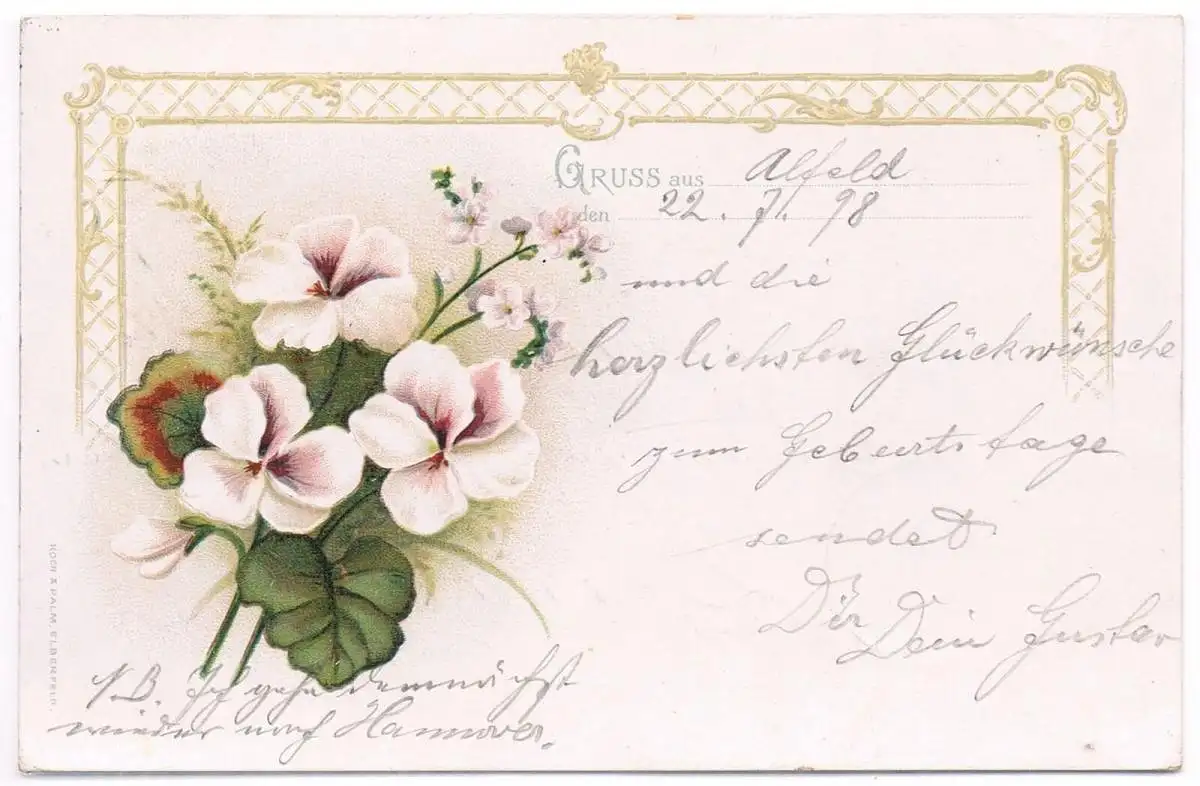 GRUSS aus Alfeld
den 22. 7. 98
und die
herzlichsten Glückwünsche
zum Geburtstage
sendet
Dir Dein Gustav
N.B. Ich gehe demnächst
wieder nach Hannover.
KOCH & PALM, ELBERFELD.